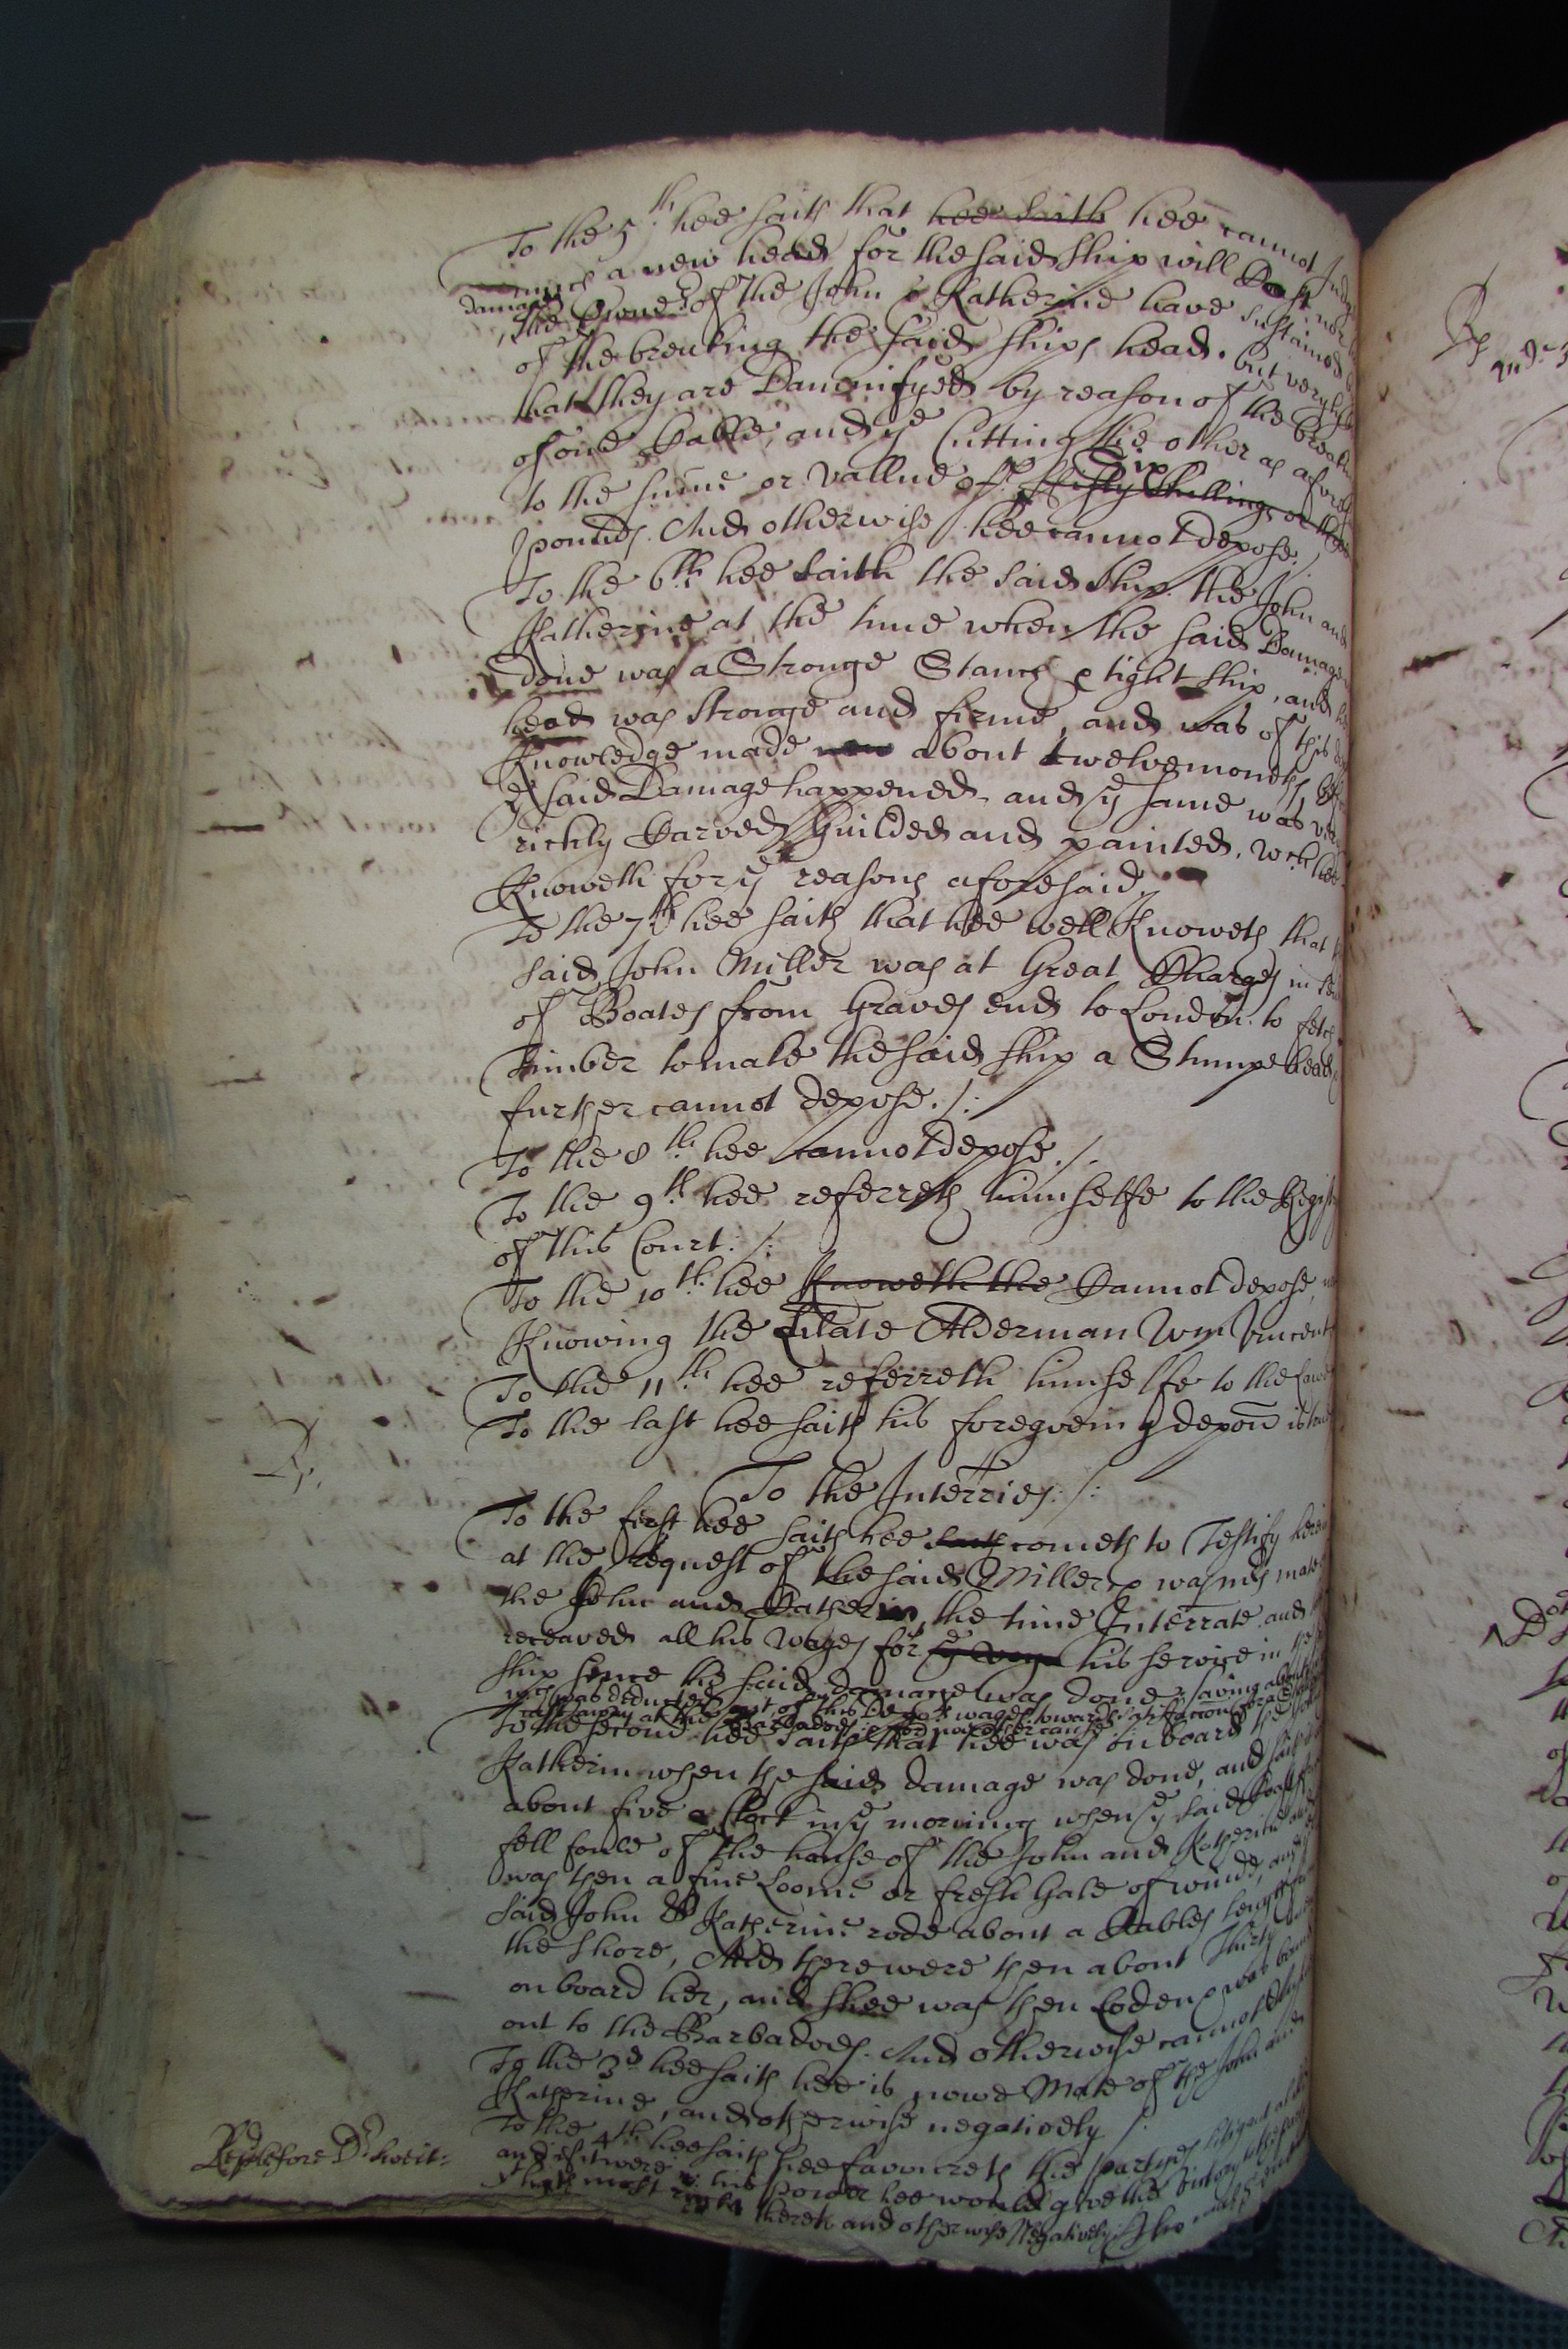 To the 5th. hee saith that hee saith hee cannot Judg
much a new head for the said ship will Cost nor
damage
the Owners of the John & Katherine have sustained
of the breaking the said ships head. but verylie
that they are Damnifyed by reason of the breaking
of one Cable, and ye Cutting the other as afores
Six
to the sume or vallue of fifty shillings or three
pounds. And otherwise hee cannot depose./
To the 6th. hee saith the said ship the John and
Katherine at the time when the said Damage
done was a Stronge Stanch & tight ship, and
head was stronge and firme, and was of this
Knowledge made new about twelve moneths bef
ye said Damage happened and ye same was ver
richly Carved Guilded and painted, wch. hee
Knoweth for ye reasons aforesaid./
To the 7th hee saith that hee well Knoweth that
said John Miller was at Great Charges in
of Boates from Graves end to London to fetch
timber to make the said ship a Stumpe head
further cannot depose./:
To the 8th. hee cannot depose./.
To the 9th. hee referreth himselfe to the Regist
of this Court:/:
To the 10th. hee Knoweth the Cannot depose,
Knowing the Estate Alderman Wm Vincent
To the 11th hee referreth himselfe to the Law
To the last hee saith his foregoeing depon is true
To the Interries:/:
To the first hee saith hee saith cometh to Testify herein
at the Request of the said Miller, & was mate
the John and Katherin, the time Interrate and
receaved all his wages for ye voya his service in ye
ship since the said damage was done, saving about
wch was deducted out of this Depots wages towards satisfaccon
cast away at the Barbadoes and no other cause
To the second hee saith that hee was on board the John
Katherin when the said damage was done, and saith
about five a Clock in ye morning when ye said
fell foule of the hause of the John and Katherine
was then a fine Loome or fresh Gale of winde, and
said John & Katherine rode about a Cables length
the shore, And there were then about Thirty
on board her, and shee was then Loden & was bound
out to the Barbadoes. And otherwise cannot depose
To the 3d hee saith hee is nowe Mate of the John and
Katherine, and otherwise negatively /.
To the 4th hee saith hee favoureth the partyes litigant alike
and if it were in his power hee would give the victory
hath most right thereto and otherwise Negatively
Repd. before Dr.